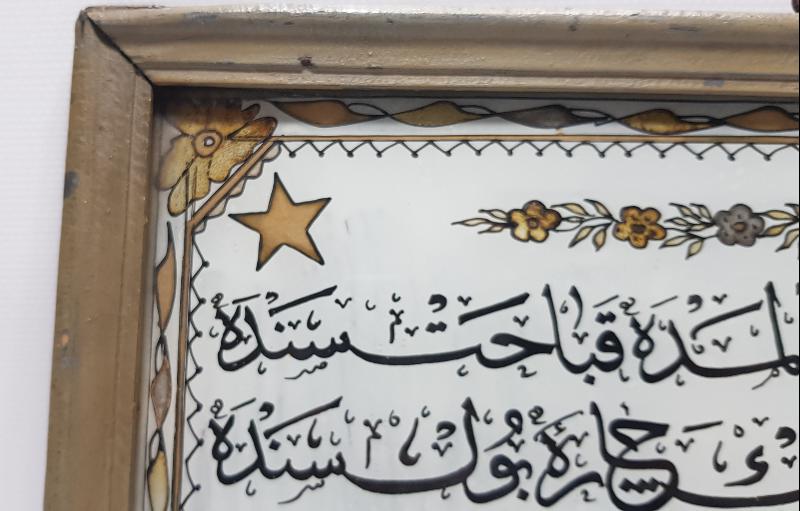 ـلمده قباحت سنده
چاره بول سنده